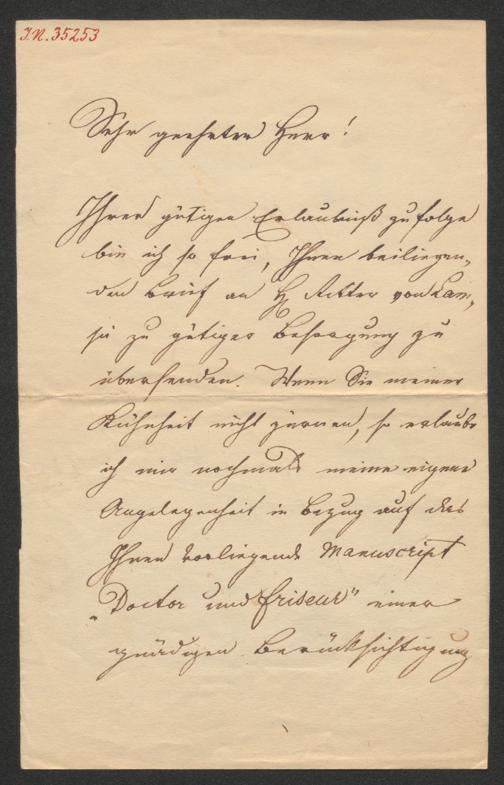 I.N. 35253
Sehr geehrter Herr!
Ihrer gütigen Erlaubniß zufolge
bin ich so frei, Ihnen beiliegen-
den Brief an H Ritter von
zu gütiger Besorgung zu
übersenden. Wenn Sie meiner
Kühnheit nicht zürnen, so erlaube
ich mir nochmals meine eigene
Angelegenheit in Bezug auf das
Ihnen vorliegende Manuscript
„Doctor und Friseur" einer
gnädigen Berücksichtigung